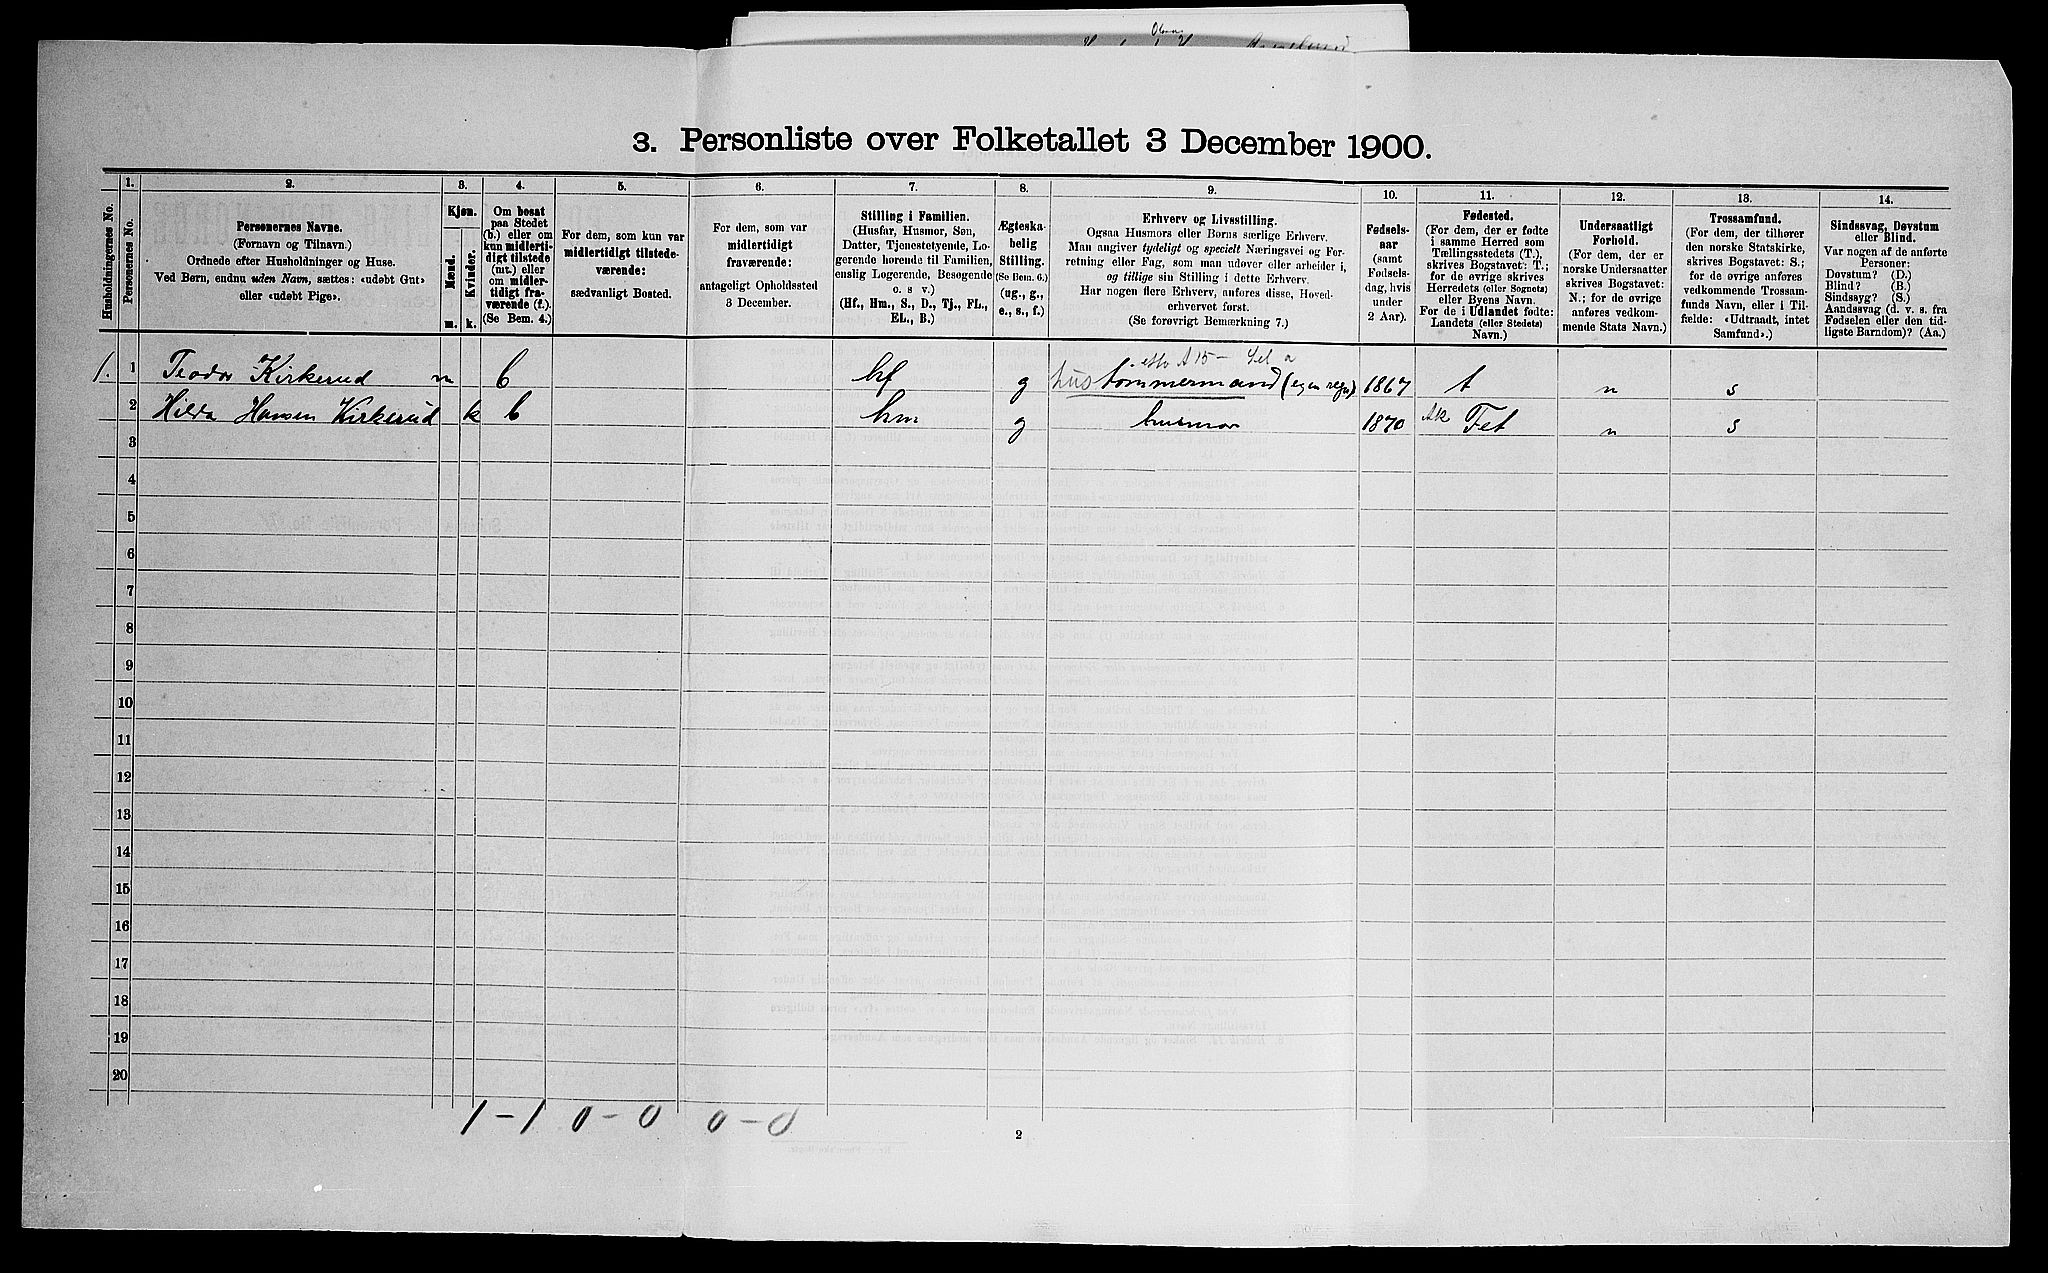 3. Personliste over Folketallet 3 December 1900.
Husholdningernes No.
1.
Personernes No.
2.
Personernes Navne.
(Fornavn og Tilnavn.)
Ordnede efter Husholdninger og Huse.
Ved Børn, endnu uden Navn, sættes: «udøbt Gut»
eller «udøbt Pige».
3.
Kjøn.
Mænd.
Kvinder.
m.
k.
4.
Om bosat
paa Stedet
(b.) eller om
kun midlerti-
digt tilstede
(mt.) eller
om midler-
tidigt fra-
værende (f.).
(Se Bem. 4.)
5.
For dem, som kun var
midlertidigt tilstede-
værende:
sædvanligt Bosted.
6.
For dem, som var
midlertidigt
fraværende:
antageligt Opholdssted
3 December.
7.
Stilling i Familien.
(Husfar, Husmor, Søn,
Datter, Tjenestetyende, Lo-
gerende hørende til Familien,
enslig Logerende, Besøgende
o. s v.)
(Hf., Hm., S., D., Tj., FL.,
EL., B.)
8.
Ægteska-
belig
Stilling.
(Se Bem. 6.)
(ug., g.,
e., s., f.)
9.
Erhverv og Livsstilling.
Ogsaa Husmors eller Børns særlige Erhverv.
Man angiver tydeligt og specielt Næringsvei og For-
retning eller Fag, som man udøver eller arbeider i,
og tillige sin Stilling i dette Erhverv.
Har nogen flere Erhverv, anføres disse, Hoved-
erhvervet først.
(Se forøvrigt Bemærkning 7.)
10.
Fødsels-
aar
(samt
Fødsels-
dag, hvis
under
2 Aar).
11.
Fødested.
(For dem, der er fødte
i samme Herred som
Tællingsstedets (T.),
skrives Bogstavet: T.;
for de øvrige skrives
Herredets (eller Sognets)
eller Byens Navn.
For de i Udlandet fødte:
Landets (eller Stedets)
Navn.)
12.
Undersaatligt
Forhold.
(For dem, der er
norske Undersaatter
skrives Bogstavet:
N.; for de øvrige
anføres vedkom-
mende Stats Navn.)
13.
Trossamfund.
(For dem, der tilhører
den norske Statskirke,
skrives Bogstavet: S.;
for de øvrige anføres
vedkommende Trossam-
funds Navn, eller i Til-
fælde: «Udtraadt, intet
Samfund».)
14.
Sindssvag, Døvstum
eller Blind.
Var nogen af de anførte
Personer:
Døvstum? (D.)
Blind? (B.)
Sindssyg? (S.)
Aandssvag (d. v. s. fra
Fødselen eller den tid-
ligste Barndom)? (Aa.)
1. 1 Teodor Kirkerud m b hf g hus tømmermand (egen regn) 1867 t n s
2 Hilda Hansen Kirkerud k b hm g husmor 1870 Ak Fet n s
3
4
5
6
7
8
9
10
11
12
13
14
15
16
17
18
19
20
1 – 1 0 – 0 0 – 0
2